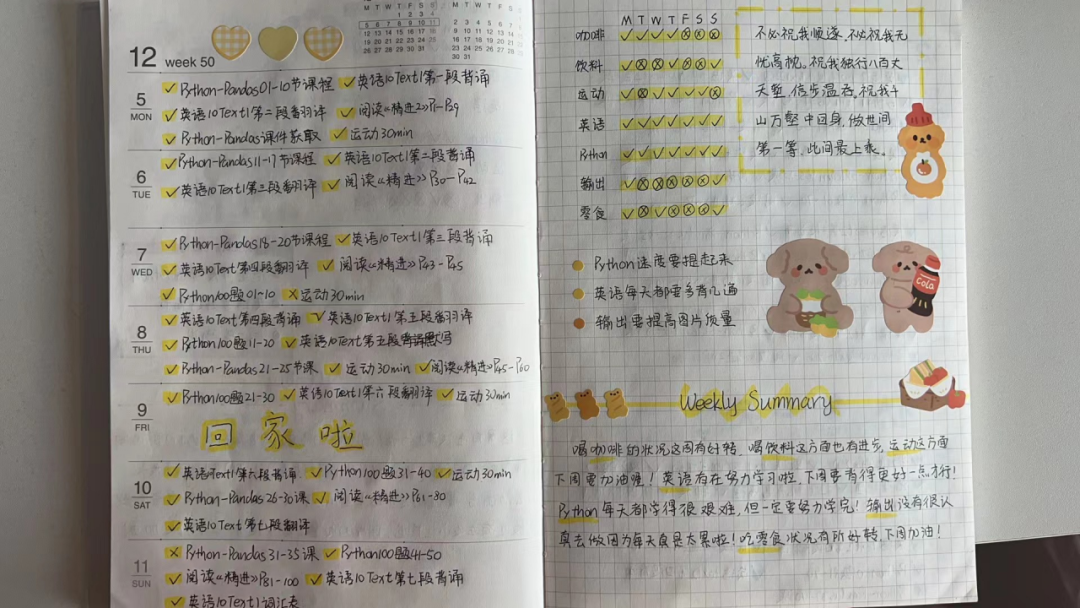 12 week 50
5 MON
✓ Python-Pandas 01-10节课程 ✓ 英语10 Text1第一段背诵
✓ 英语10 Text1第二段翻译 ✓ 阅读《精进2》P1-P29
✓ Python-Pandas课件获取 ✓ 运动30min
6 TUE
✓ Python-Pandas 11-17节课程 ✓ 英语10 Text1第二段背诵
✓ 英语10 Text1第三段翻译 ✓ 阅读《精进》P30-P42
7 WED
✓ Python-Pandas 18-20节课程 ✓ 英语10 Text1第三段背诵
✓ 英语10 Text第四段翻译 ✓ 阅读《精进》P43-P45
✓ Python100题01-10 ✗ 运动30min
8 THU
✓ 英语10 Text第四段背诵 ✓ 英语10 Text1第五段翻译
✓ Python100题11-20 ✓ 英语10 Text第五段默写
✓ Python-Pandas 21-25节课 ✓ 运动30min ✓ 阅读《精进》P45-P60
9 FRI
✓ Python100题21-30 ✓ 英语10 Text1第六段翻译 ✓ 运动30min
回家啦
10 SAT
✓ 英语10 Text1第六段背诵 ✓ Python100题31-40 ✓ 运动30min
✓ Python-Pandas 26-30课 ✓ 阅读《精进》P61-80
✓ 英语10 Text第七段翻译
11 SUN
✗ Python-Pandas 31-35课 ✓ Python100题41-50
✓ 阅读《精进》P81-100 ✓ 英语10 Text第七段背诵
✓ 英语10 Text1词汇表
M T W T F S S
咖啡 ✓ ✓ ✓ ✓ ⊗ ⊗ ⊗
饮料 ✓ ⊗ ⊗ ✓ ⊗ ⊗ ✓
运动 ✓ ⊗ ✓ ✓ ✓ ✓ ⊗
英语 ✓ ✓ ✓ ✓ ✓ ✓ ✓
Python ✓ ✓ ✓ ✓ ✓ ✓ ✓
输出 ✓ ⊗ ⊗ ⊗ ⊗ ⊗ ✓
零食 ✓ ⊗ ✓ ⊗ ⊗ ⊗ ✓
不必祝我顺遂、不必祝我无
忧高枕。祝我独行八百丈
天堑,信步温吞,祝我千
山万壑中回身,做世间
第一等,此间最上乘。
Python速度要提起来
英语每天都要多背几遍
输出要提高图片质量
Cola
Weekly Summary
喝咖啡的状况这周有好转,喝饮料这方面也有进步,运动这方面
下周要加油哦!英语有在努力学习啦,下周要背得更好一点才行!
Python每天都学得很艰难,但一定要努力学完!输出没有很认
真去做因为每天真是太累啦!吃零食状况有所好转,下周加油!